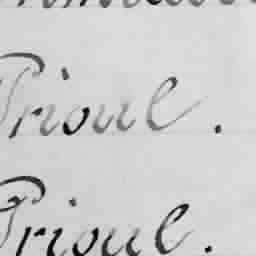 Prioul.
Prioul.